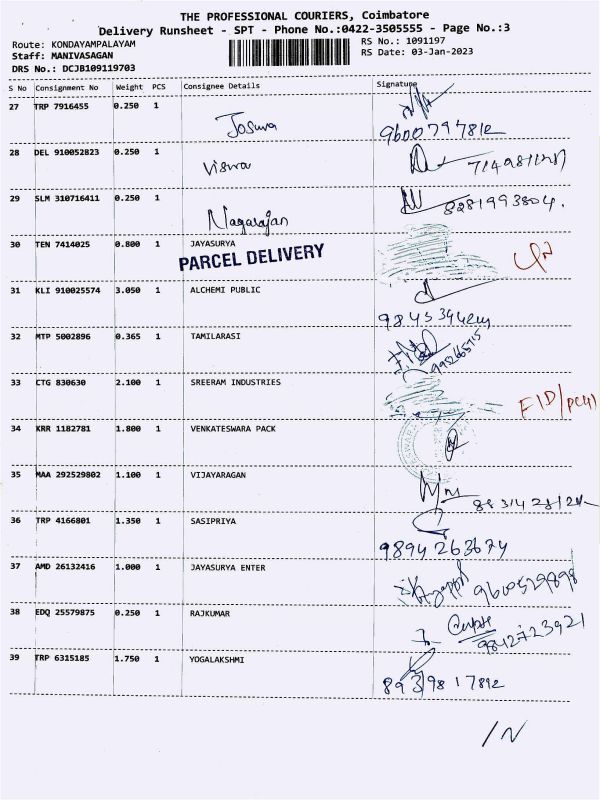 THE PROFESSIONAL COURIERS, Coimbatore
Delivery Runsheet - SPT - Phone No.:0422-3505555 - Page No.:3
Route: KONDAYAMPALAYAM RS No.: 1091197
Staff: MANIVASAGAN RS Date: 03-Jan-2023
DRS No.: DCJB109119703
S No Consignment No Weight PCS Consignee Details Signature
27 TRP 7916455 0.250 1
Josuva 9600797812
28 DEL 910052823 0.250 1
Viswa
29 SLM 310716411 0.250 1
Nagarajan 8281993804.
30 TEN 7414025 0.800 1 JAYASURYA
PARCEL DELIVERY
31 KLI 910025574 3.050 1 ALCHEMI PUBLIC
32 MTP 5002896 0.365 1 TAMILARASI
33 CTG 830630 2.100 1 SREERAM INDUSTRIES
34 KRR 1182781 1.800 1 VENKATESWARA PACK
35 MAA 292529802 1.100 1 VIJAYARAGAN
36 TRP 4166801 1.350 1 SASIPRIYA
9894263674
37 AMD 26132416 1.000 1 JAYASURYA ENTER
9600529898
38 EDQ 25579875 0.250 1 RAJKUMAR
9842723921
39 TRP 6315185 1.750 1 YOGALAKSHMI
8939817812